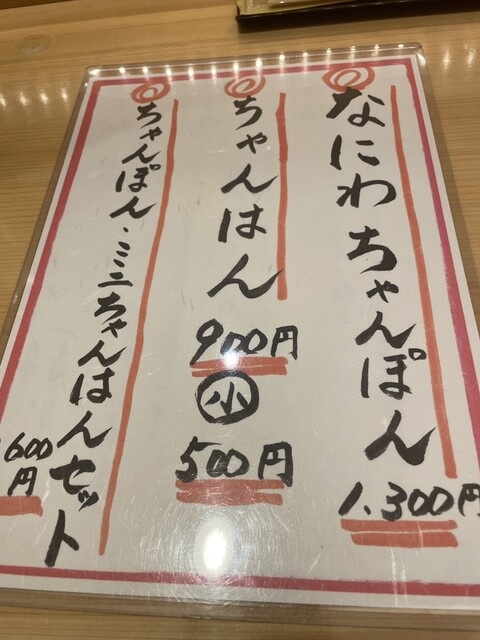 なにわちゃんぽん
1.300円
ちゃんはん
900円
小
500円
ちゃんぽん・ミニちゃんはんセット
600円